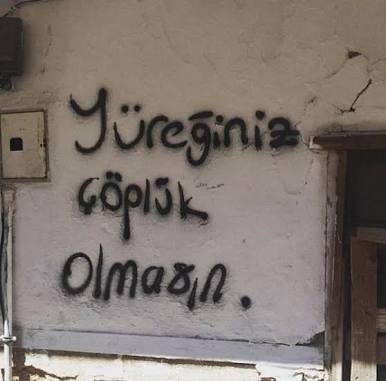 Yüreğiniz
çöplük
olmasın.